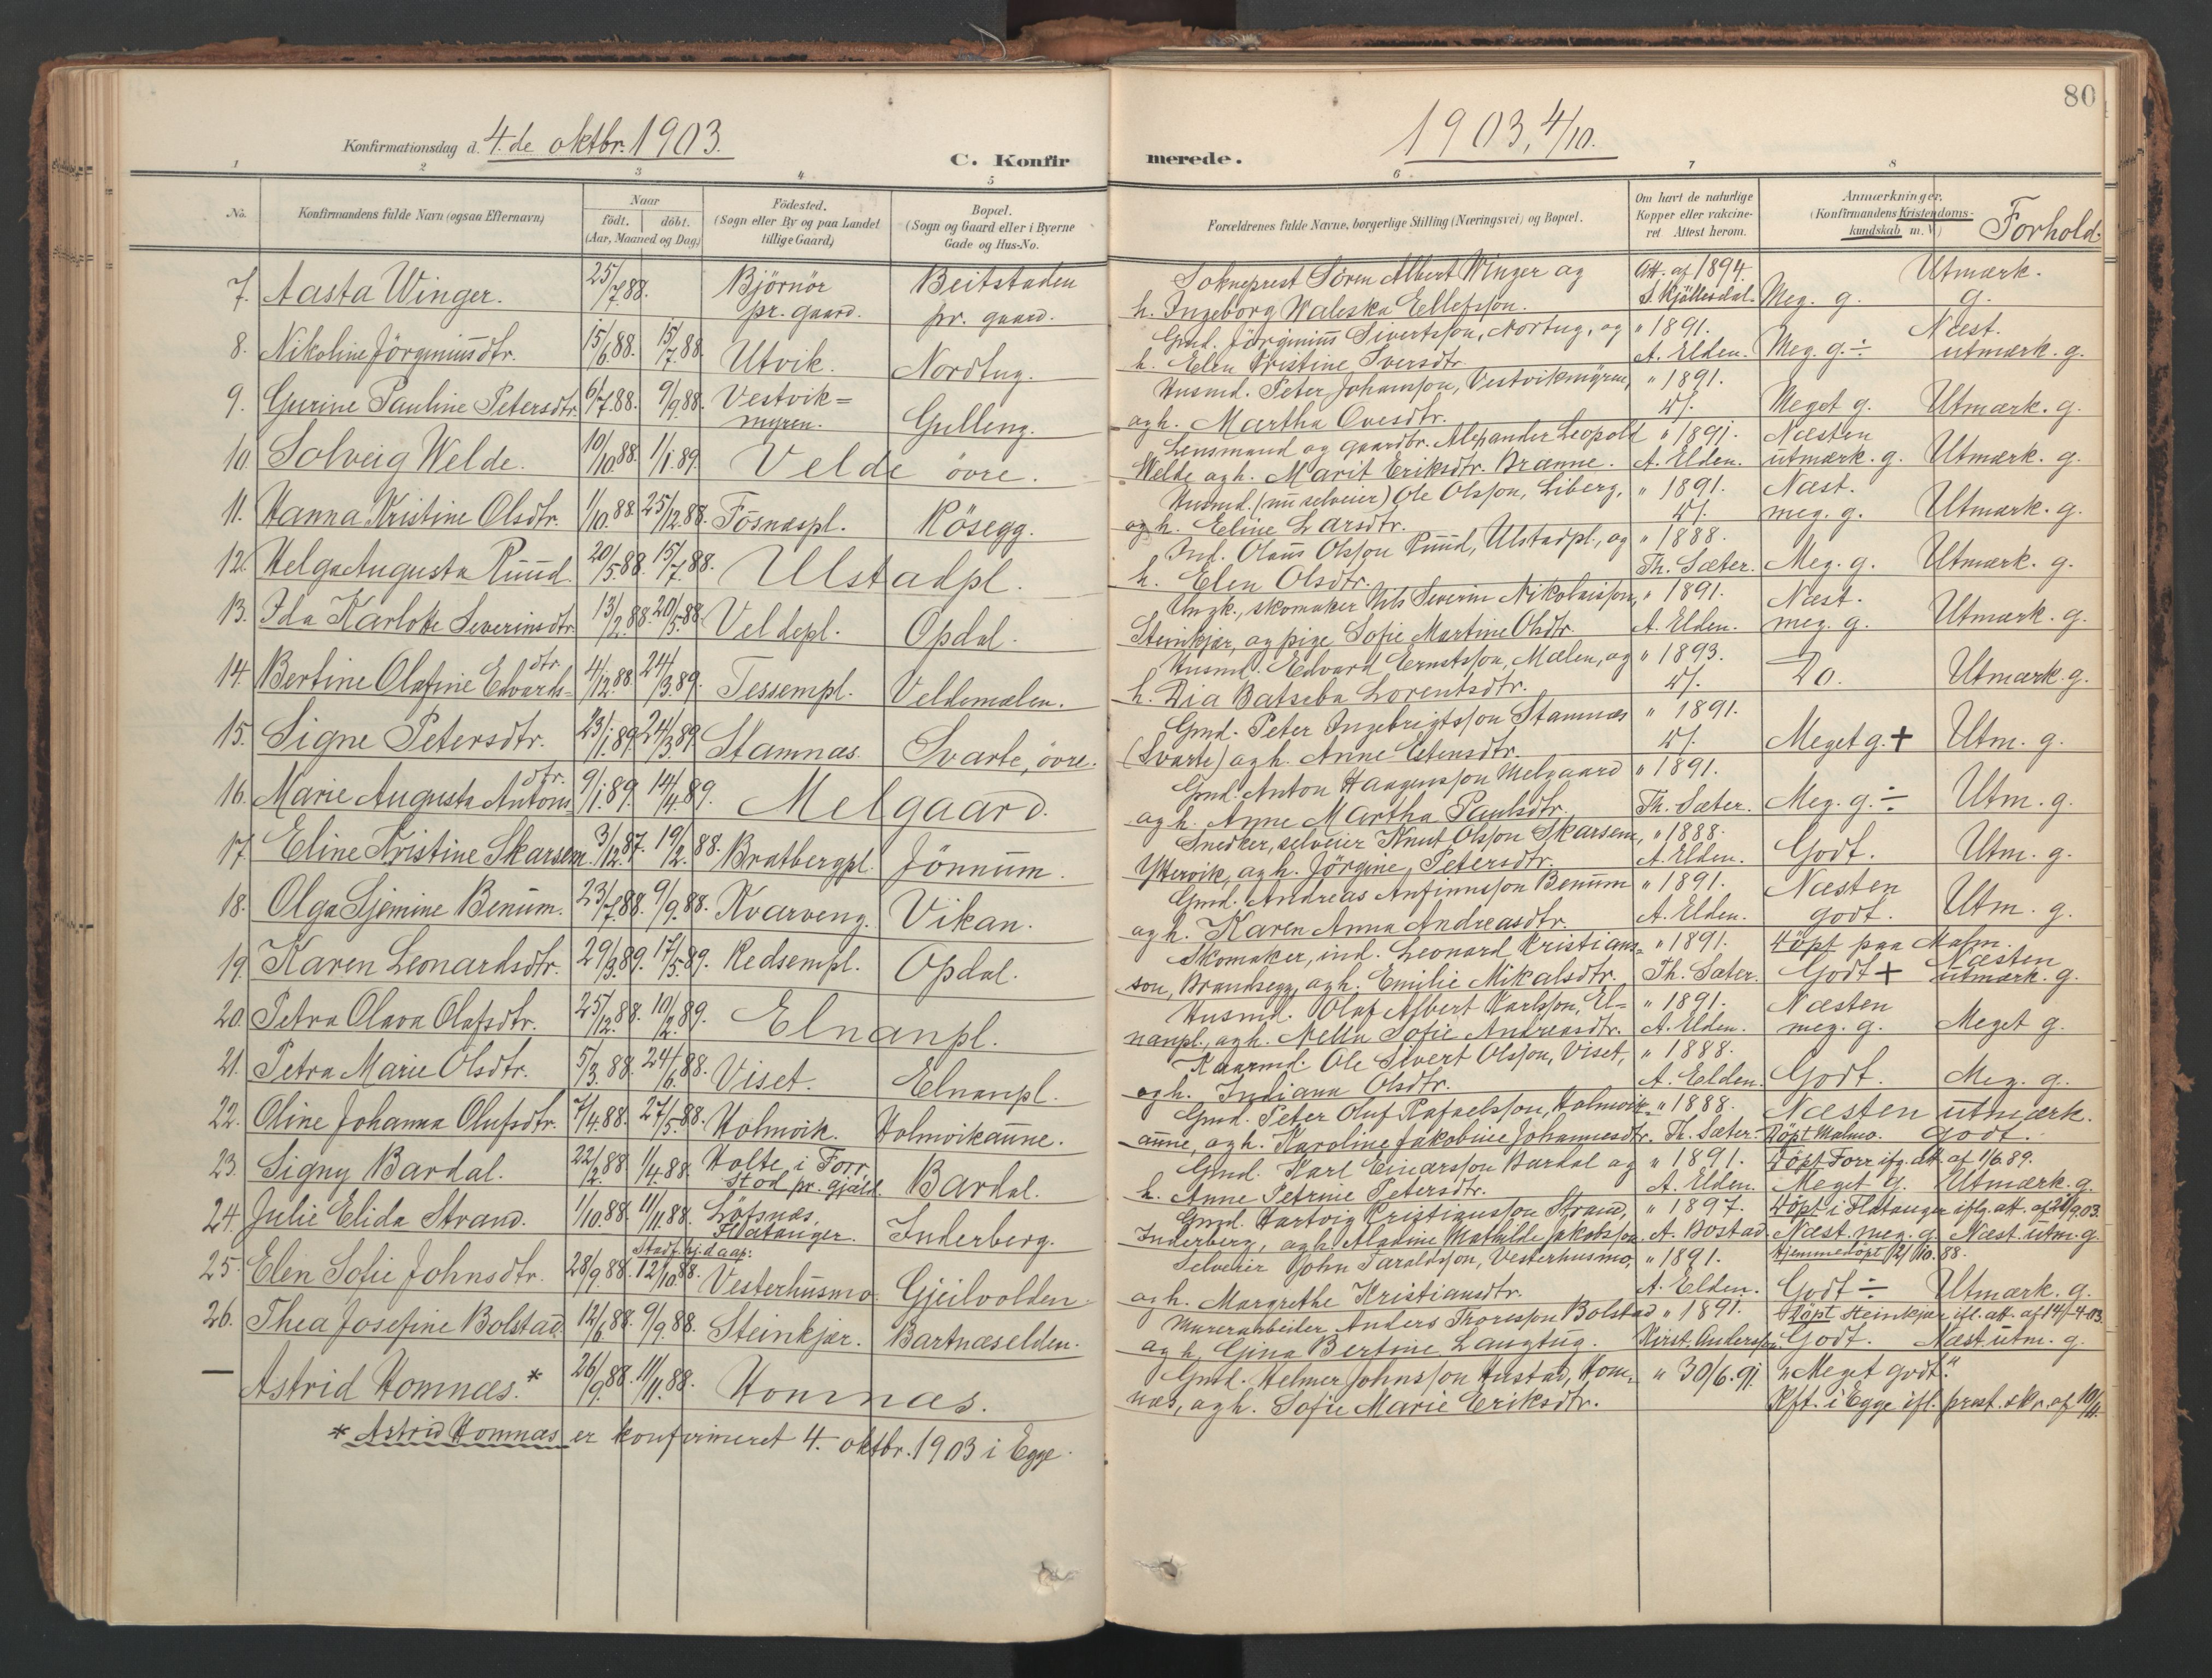 80
Konfirmationsdag d. 4. de oktbr. 1903.
C. Konfir
merede.
1903, 4/10.
1 2 3 4 5 6 7 8
No. Konfirmandens fulde Navn (ogsaa Efternavn) Naar født. døbt. (Aar, Maaned og Dag) Födested. (Sogn eller By og paa Landet tillige Gaard) Bopæl. (Sogn og Gaard eller i Byerne Gade og Hus-No. Forældrenes fulde Navne, borgerlige Stilling (Næringsvei) og Bopæl. Om havt de naturlige Kopper eller vakcineret Attest herom. Anmærkninger. (Konfirmandens Kristendomskundskab m. V.) Forhold.
7. Aasta Winger. 25/7.88. Björnör pr. gaard. Beitstaden pr. gaard. Sokneprest Sören Albert Winger og h. Ingeborg Waleska Ellefsson. Att. af 1894. S. Kjöllesdal. Meg. g. Utmærk. g.
8. Nikoline Jörginiusdtr. 15/6.88. 15/7.88. Utvik. Nordtug. Gmd. Jörginius Sivertsson, Nortug, og h. Elen Kristine Iversdtr. " 1891. A. Elden. Meg. g. ÷ Næst. utmærk. g.
9. Gurine Pauline Petersdtr. 6/7.88. 9/9.88. Vestvik= myren. Gulleng. Husmd. Peter Johansson, Vestvikmyren, og h. Martha Ovesdtr. " 1891. Meget g. Utmærk. g.
10. Solveig Welde. 10/10.88. 11/1.89. Velde övre. Lensmand og gaardbr. Alexander Leopold Welde og h. Marit Eriksdtr. Brænne. " 1891. A. Elden. Næsten utmærk. g. Utmærk. g.
11. Hanna Kristine Olsdtr. 1/10.88. 25/12.88. Fosnæspl. Kösegg. Husmd. (nu selveier) Ole Olsson, Liberg, og h. Eline Larsdtr. " 1891. Næst. meg. g. Utmærk. g.
12. Helga Augusta Ruud. 20/5.88. 15/7.88. Ulstadpl. Ind. Olaus Olsson Ruud, Ulstadpl., og h. Elen Olsdtr. " 1888. Th. Sæter. Meg. g. Utmærk. g.
13. Ida Karlotte Severinsdtr. 13/2.88. 20/5.88. Veldepl. Opdal. Ungk., skomaker Nils Severin Nikolaisson, Steinkjær, og pige Sofie Martine Olsdtr. " 1891. A. Elden. Næst. meg. g. Utmærk. g.
14. Bertine Olafine Edvards= dtr. 4/12.88. 24/3.89. Tessempl. Veldemælen. Husmd. Edvard Ernstsson, Mælen, og h. Dia Batseba Lorentsdtr. " 1893. Do. Utmærk. g.
15. Signe Petersdtr. 23/1.89. 24/3.89. Stamnæs. Svarte, övre. Gmd. Peter Ingebrigtsson Stamnæs (Svarte) og h. Anne Estensdtr. " 1891. Meget g. + Utm. g.
16. Marie Augusta Antons dtr. 9/1.89. 14/4.89. Melgaard. Gmd. Anton Haagensson Melgaard og h. Anne Martha Paulsdtr. " 1891. Th. Sæter. Meg. g. ÷ Utm. g.
17. Eline Kristine Skarsem. 3/12.87. 19/2.88. Bratbergpl. Jönnum. Snedker, selveier Knut Olsson Skarsem, Yttervik, og h. Jörgine Petersdtr. " 1888. A. Elden. Godt. Utm. g.
18. Olga Sjemine Benum. 23/7.88. 9/9.88. Kvarveng. Vikan. Gmd. Andreas Anfinnsson Benum og h. Karen Anna Andreasdtr. " 1891. A. Elden. Næsten godt. Utm. g.
19. Karen Leonardsdtr. 29/3.89. 17/5.89. Redsempl. Opdal. Skomaker, ind. Leonard Kristians= son, Brandsegg, og h. Emilie Mikalsdtr. " 1891. Th. Sæter. Döpt paa Malm. Godt + Næsten utmærk. g.
20. Petra Olava Olafsdtr. 25/12.88. 10/2.89. Elnanpl. Husmd. Olaf Albert Karlsson, El= nanpl., og h. Nella Sofie Andreasdtr. " 1891. A. Elden. Næsten meg. g. Meget g.
21. Petra Marie Olsdtr. 5/3.88. 24/6.88. Viset. Elnanpl. Kaarmd. Ole Sivert Olsson, Viset, og h. Indiana Olsdtr. " 1888. A. Elden. Godt. Meg. g.
22. Oline Johanna Olufsdtr. 7/4.88. 27/5.88. Holmvik. Holmvikaunne. Gmd. Peter Oluf Rafaelsson, Holmvik= aunne, og h. Karoline Jakobine Johannesdtr. " 1888. Th. Sæter. Næsten utmærk. Döpt Malmo. godt.
23. Signy Bardal. 22/2.88. 1/4.88. Holte i Forr. Stod pr. gjæld. Bardal. Gmd. Karl Einarsson Bardal og h. Anne Petrine Petersdtr. " 1891. A. Elden. Döpt Forr ifg. att. af 1/6.89. Meget g. Utmærk. g.
24. Julie Elida Strand. 1/10.88. 11/11.88. Löfsnæs, Flatanger. Inderberg. Gmd. Hartvig Kristiansson Strand, Inderberg, og h. Aladine Mathilde Jakobsson. " 1897. A. Bostad. Döpt i Flatanger iflg. att. af 21/9.03. Næst. meg. g. Næst. utm. g.
25. Elen Sofie Johnsdtr. 28/9.88. Stadf. hj.daap: 12/10.88. Vesterhusmo. Gjeilvolden. Selveier John Taraldsson, Vesterhusmo, og h. Margrethe Kristiansdtr. " 1891. A. Elden. Hjemmedöpt 12/10.88. Godt ÷ Utmærk. g.
26. Thea Josefine Bolstad. 12/6.88. 9/9.88. Steinkjær. Bartnæselden. Murerarbeider Anders Thoresson Bolstad og h. Gina Bertine Langtug. " 1891. Kirst. Andersson. Döpt Steinkjær ifl. att. af 14/4-03. Godt. Næst utm. g.
— Astrid Homnæs. * 26/9.88. 11/11.88. Homnæs. Gmd. Helmer Johnsson Hustad, Hom= næs, og h. Sofie Marie Eriksdtr. " 30/6.91. "Meget godt." Kft. i Egge ifl. prest. skr. af 10/11.
* Astrid Homnæs er konfirmeret 4. oktbr. 1903 i Egge.